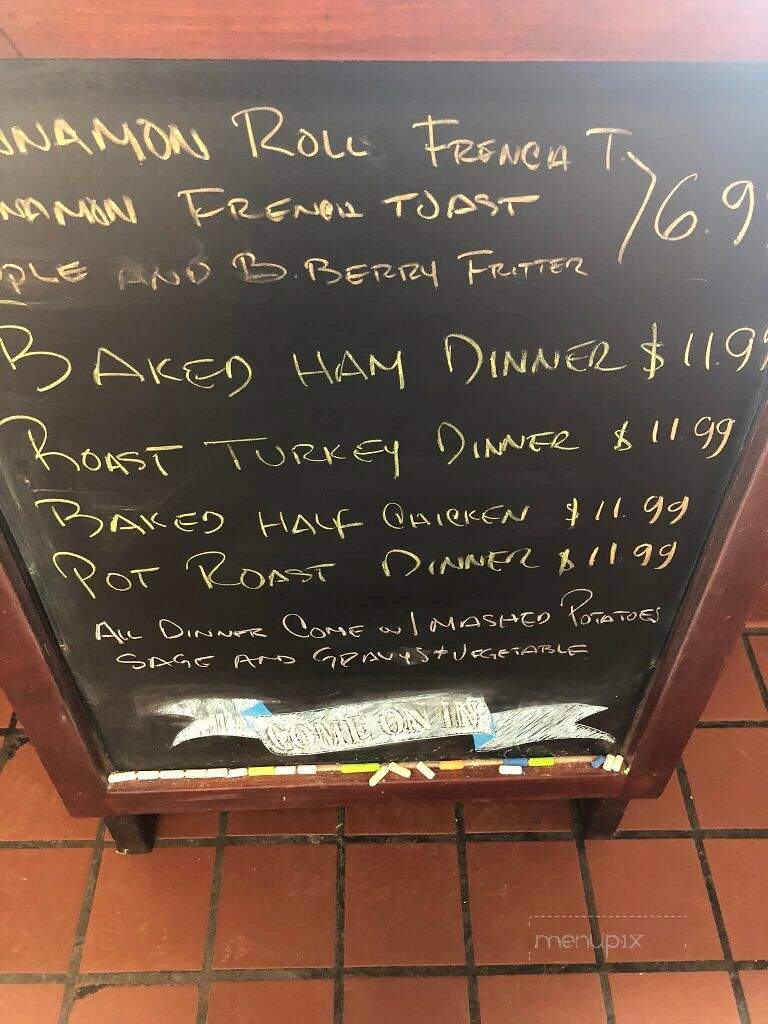 NNAMON ROLL FRENCH T.
NAMON FRENCH TOAST 6.9
PLE AND B.BERRY FRITTER
BAKED HAM DINNER $11.99
ROAST TURKEY DINNER $11.99
BAKED HALF CHICKEN $11.99
POT ROAST DINNER $11.99
ALL DINNER COME W/MASHED POTATOES
SAGE AND GRAVYS+VEGETABLE
COME ON IN
menupix